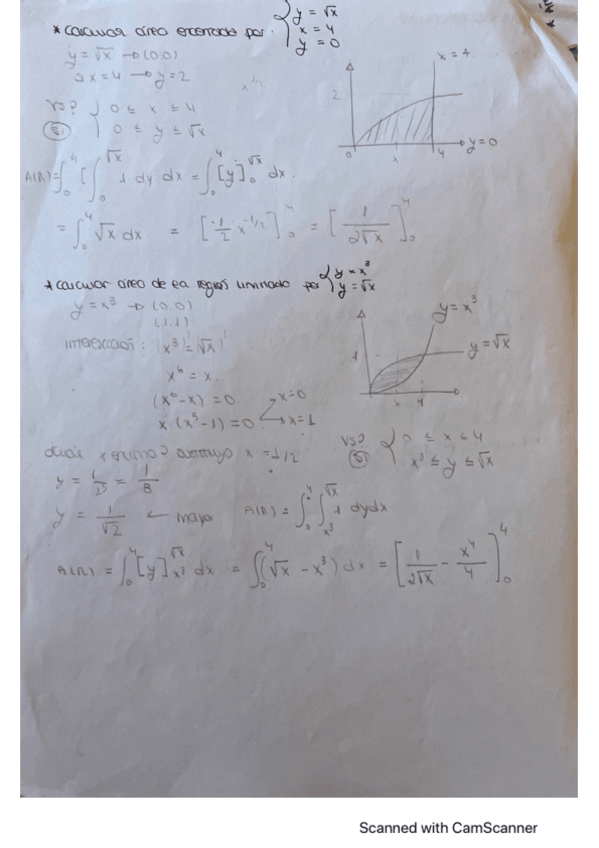 * calcular área encerrada por: { y = √x
x = 4
y = 0
y = √x → (0,0)
x = 4 → y = 2
x = 4
2
0 x 4 y = 0
{ 0 ≤ x ≤ 4
0 ≤ y ≤ √x
A(R) = ∫₀⁴ [ ∫₀^√x 1 dy dx = ∫₀⁴ [y]₀^√x dx.
= ∫₀⁴ √x dx = [-1/2 x^-1/2]₀⁴ = [1/(2√x)]₀⁴
* calcular área de la región limitado por { y = x³
y = √x
y = x³ → (0,0)
(1,1)
intersección: (x³)² = (√x)²
x⁶ = x.
(x⁶ - x) = 0.
x·(x⁵ - 1) = 0
x = 0
x = 1
y = x³
y = √x
1
x
x = 1/2
y = 1/2³ = 1/8
y = 1/√2 ← mayor
{ 0 ≤ x ≤ 4
x³ ≤ y ≤ √x
A(R) = ∫₀⁴ ∫_x³^√x 1 dydx.
A(R) = ∫₀⁴ [y]_x³^√x dx = ∫₀⁴ (√x - x³) dx = [1/(2√x) - x⁴/4]₀⁴
Scanned with CamScanner